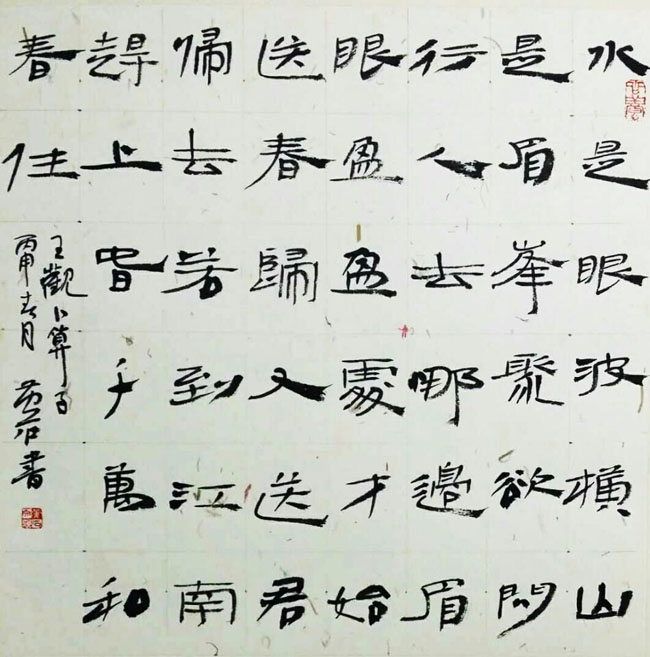 水是眼波横山
是眉峯聚欲問
行人去哪邊眉
眼盈盈處才始
送春歸又送君
帰去若到江南
趕上旾千萬和
春住
王觀卜算子
丙申春月 書